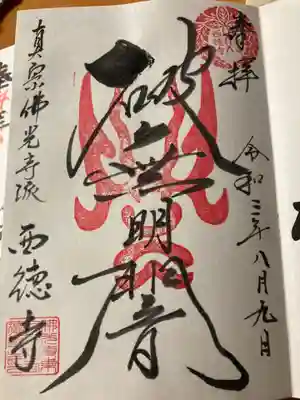 奉拝
令和三年八月九日
破無明闇
真宗佛光寺派 西徳寺